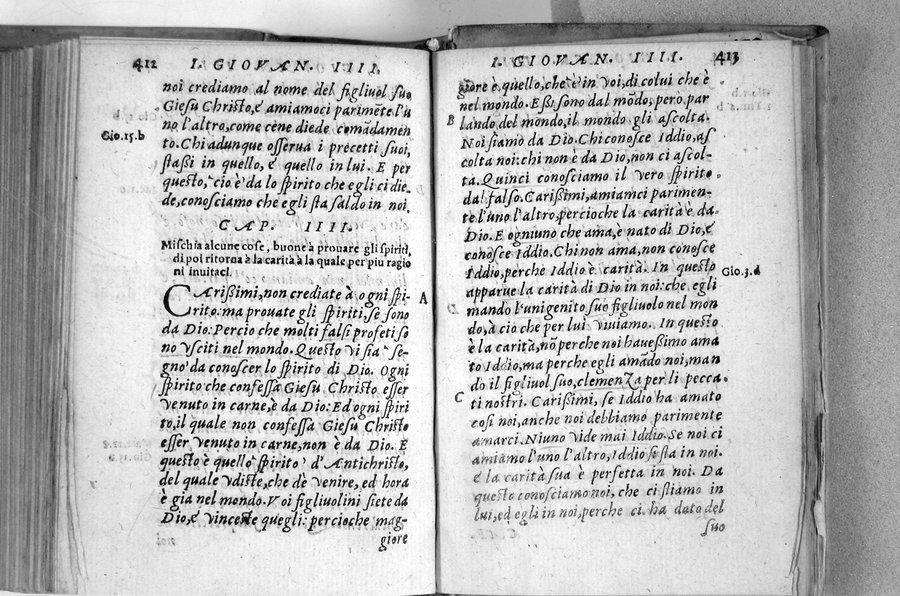 412 I. GIOVAN. IIII.
noi crediamo al nome del figliuol suo
Giesu Christo, e amiamoci parimẽte l'u
no l'altro, come cene diede comãdamen
Gio.15.b
to. Chi adunque osserua i precetti suoi,
staßi in quello, e quello in lui. E per
questo, cio è da lo spirito che egli ci die-
de, conosciamo che egli sta saldo in noi.
CAP. IIII.
Mischia alcune cose, buone à prouare gli spiriti,
di poi ritorna à la carità à la quale per piu ragio
ni inuitaci.
CArißimi, non crediate à ogni spi-
A
rito: ma prouate gli spiriti, se sono
da Dio: Percio che molti falsi profeti so
no vsciti nel mondo. Questo vi sia se-
gno da conoscer lo spirito di Dio. Ogni
spirito che confessa Giesu Christo esser
venuto in carne, è da Dio: Ed ogni spiri
to, il quale non confessa Giesu Christo
esser venuto in carne, non è da Dio. E
questo è quello spirito d'Antichristo,
del quale vdiste, che dè venire, ed hora
è gia nel mondo. Voi figliuolini siete da
Dio, e vinceste quegli: percioche mag-
giore
I. GIOVAN. IIII. 413
giore è quello, che è in voi, di colui che è
nel mondo. Eßi sono dal mõdo, però par
B
lando del mondo, il mondo gli ascolta.
Noi siamo da Dio. Chi conosce Iddio, as
colta noi: chi non è da Dio, non ci ascol-
ta. Quinci conosciamo il vero spirito
dal falso. Carißimi, amiamci parimen-
te l'uno l'altro, percioche la carità è da
Dio. E ogniuno che ama, è nato di Dio, e
conosce Iddio. Chi non ama, non conosce
Iddio, perche Iddio è carità. In questo
Gio.3.d
apparue la carità di Dio in noi: che egli
mando l'unigenito suo figliuolo nel mon
do, à cio che per lui viuiamo. In questo
è la carità, nõ perche noi haueßimo ama
to Iddio, ma perche egli amãdo noi, man
do il figliuol suo, clemenza per li pecca-
C
ti nostri. Carißimi, se Iddio ha amato
cosi noi, anche noi debbiamo parimente
amarci. Niuno vide mai Iddio. Se noi ci
amiamo l'uno l'altro, Iddio si sta in noi.
e la carità sua è perfetta in noi. Da
questo conosciamo noi, che ci stiamo in
lui, ed egli in noi, perche ci ha dato del
suo